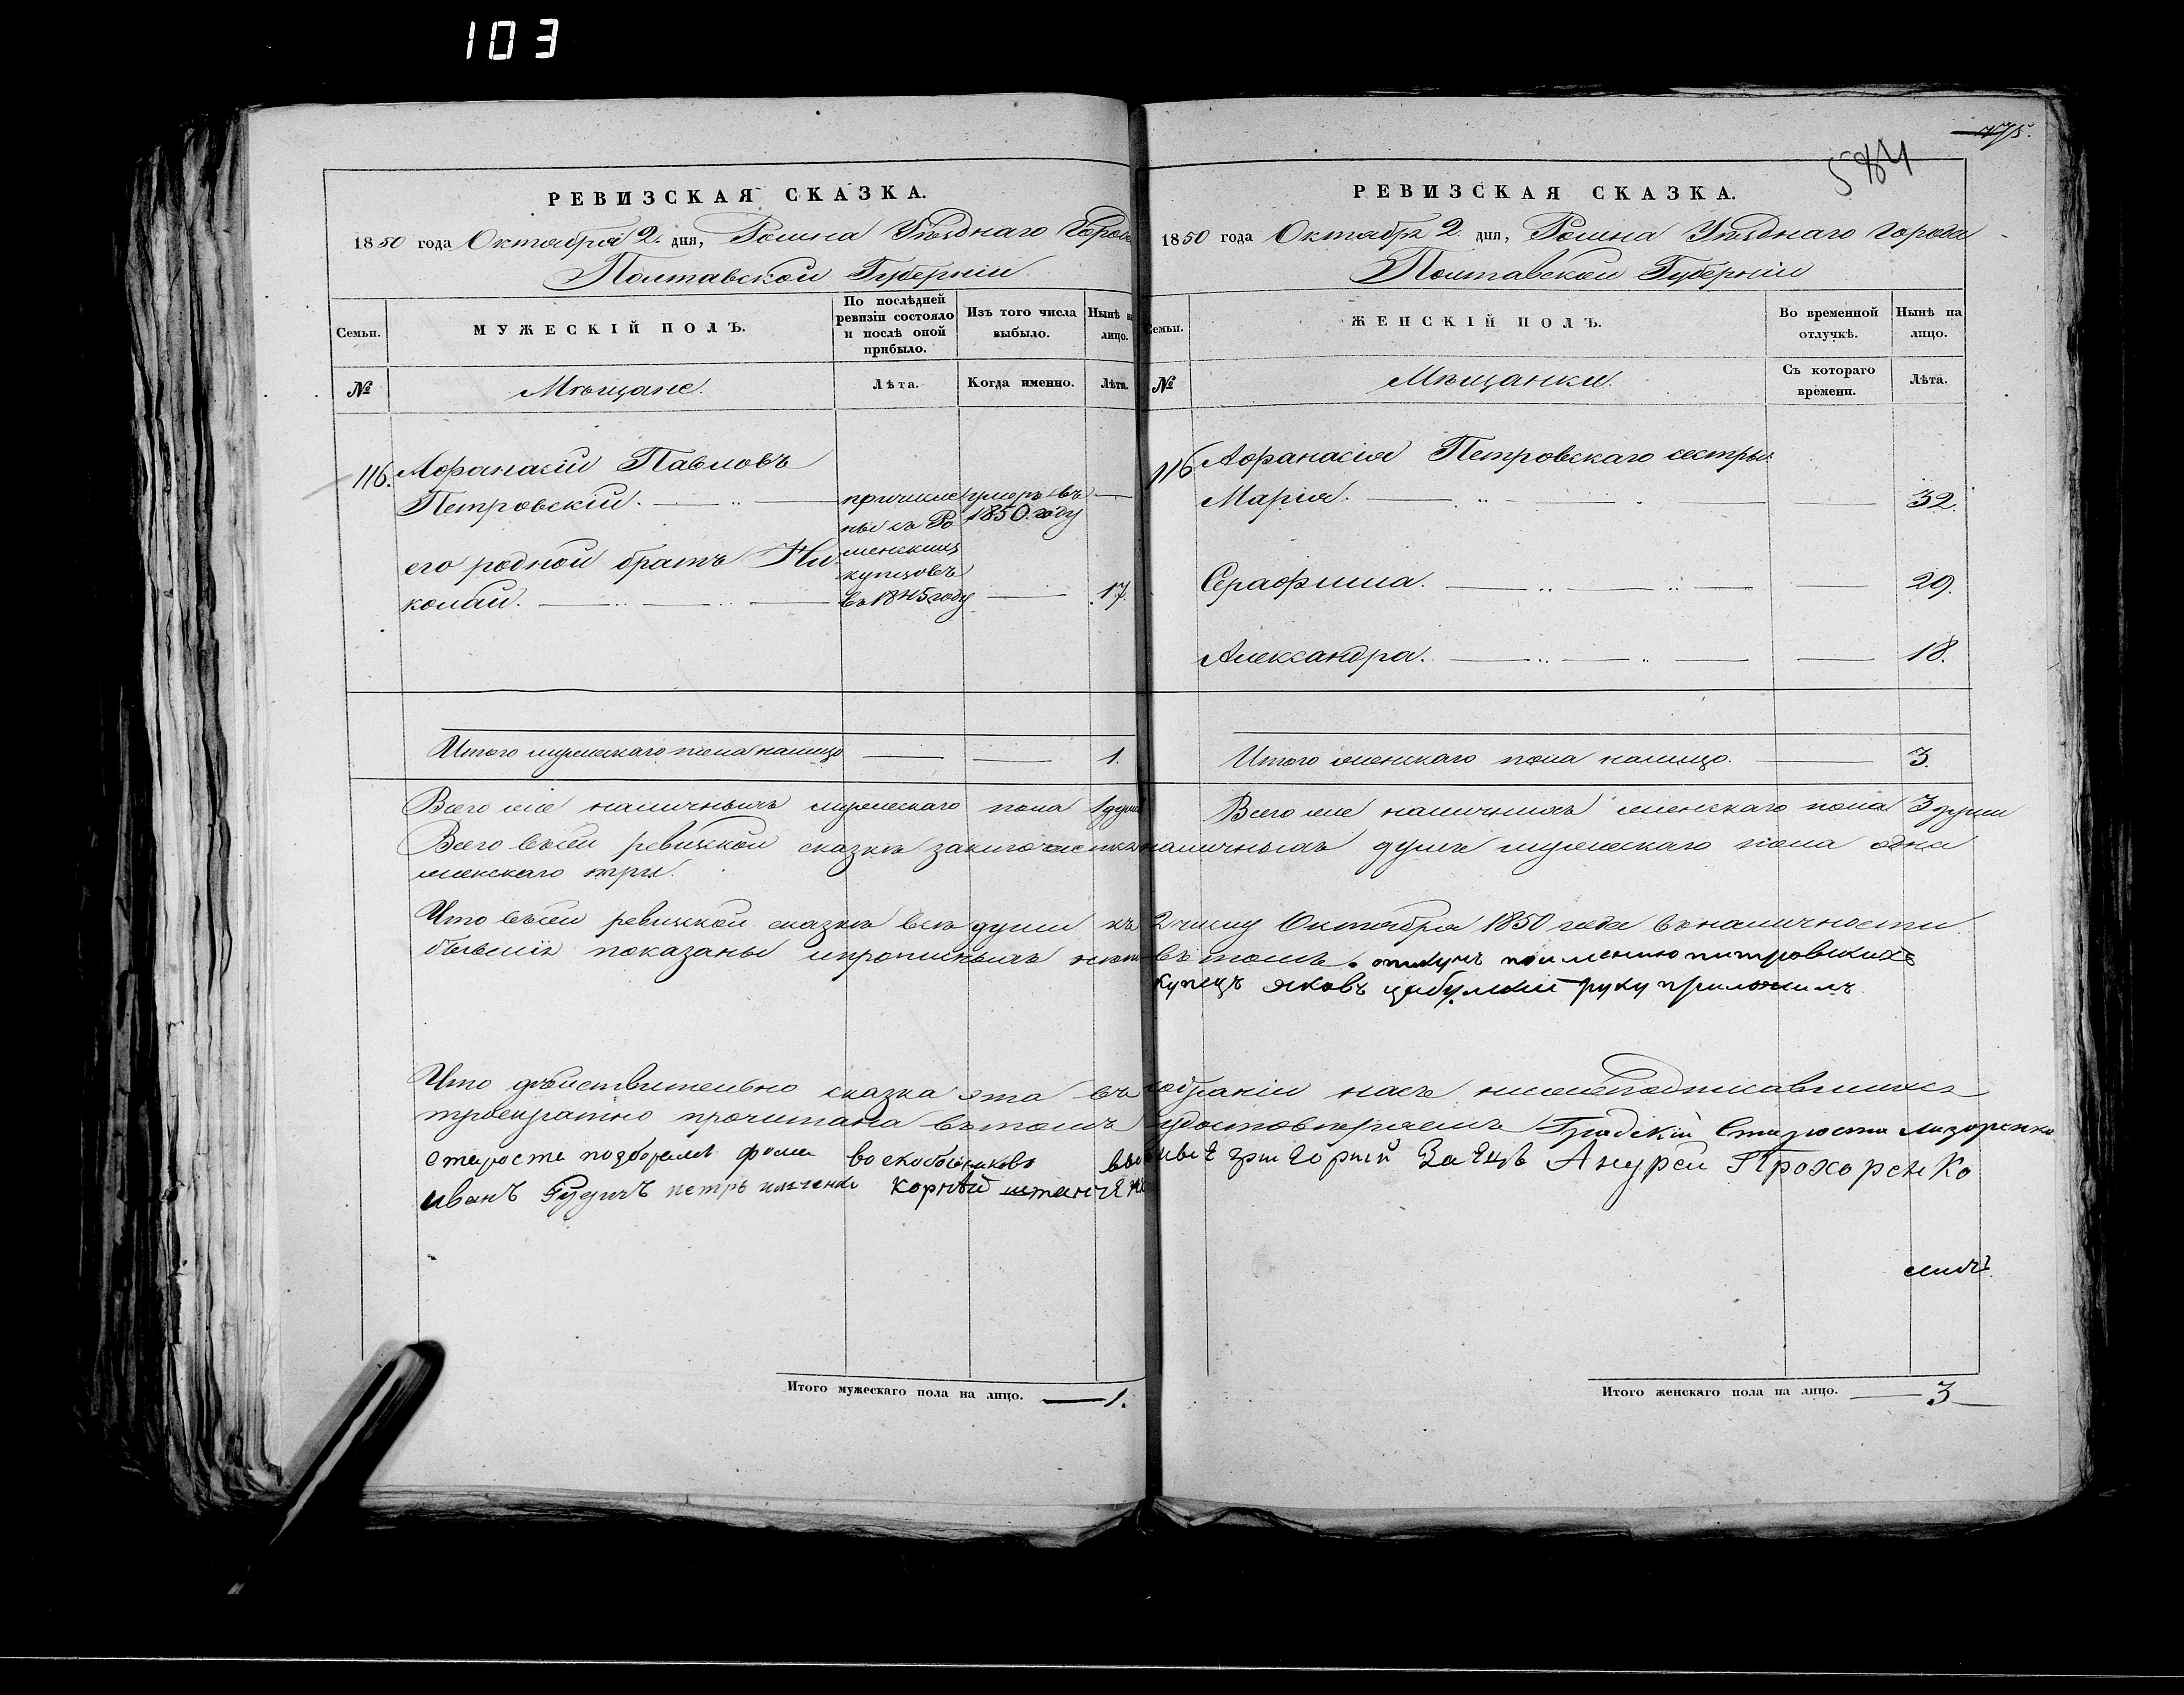 103
РЕВИЗСКАЯ СКАЗКА.
1850 года Октября 2. дня, Ромна Уѣзднаго Города
Полтавской Губерніи
Семьи.
МУЖЕСКІЙ ПОЛЪ.
По послѣдней ревизіи состояло и послѣ оной прибыло.
Изъ того числа выбыло.
Нынѣ на лицо.
№
Мѣщане.
Лѣта.
Когда именно.
Лѣта.
116. Афанасій Павловъ
Петровскій.
причислены съ Роменскихъ купцовъ въ 1845 году
умеръ въ 1850. году
его родной братъ Николай. 17.
Итого мужескаго пола налицо 1.
Всего же наличныхъ мужескаго пола 1 душа
Итого мужескаго пола на лицо. 1.
475.
584
РЕВИЗСКАЯ СКАЗКА.
1850 года Октября 2. дня, Ромна Уѣзднаго Города
Полтавской Губерніи
Семьи.
ЖЕНСКІЙ ПОЛЪ.
Во временной отлучкѣ.
Нынѣ на лицо.
№
Мѣщанки.
Съ котораго времени.
Лѣта.
116 Афанасія Петровскаго сестры
Марія. 32.
Серафима. 29.
Александра. 18.
Итого женскаго пола налицо. 3.
Всего же наличныхъ женскаго пола 3 души
Всего въ сей ревизкой сказкѣ заключается наличныхъ душъ мужескаго пола одна
женскаго три.
Что въ сей ревизкой сказкѣ всѣ души къ 2 числу Октября 1850 года въ наличности
бывшія показаны и прописныхъ нетъ въ томъ опекунъ по имению питровскихъ
купецъ яковъ руку приложилъ
Что дѣйствительно сказка эта въ собраніи насъ нижеподписавшихся
троекратно прочитана въ томъ удостовѣряемъ Градскій Староста
староста фома воскобойниковъ выборные григорий Заяцъ Андрей Прохоренко
иванъ Рудичъ петръ корнѣй
Итого женскаго пола на лицо. 3